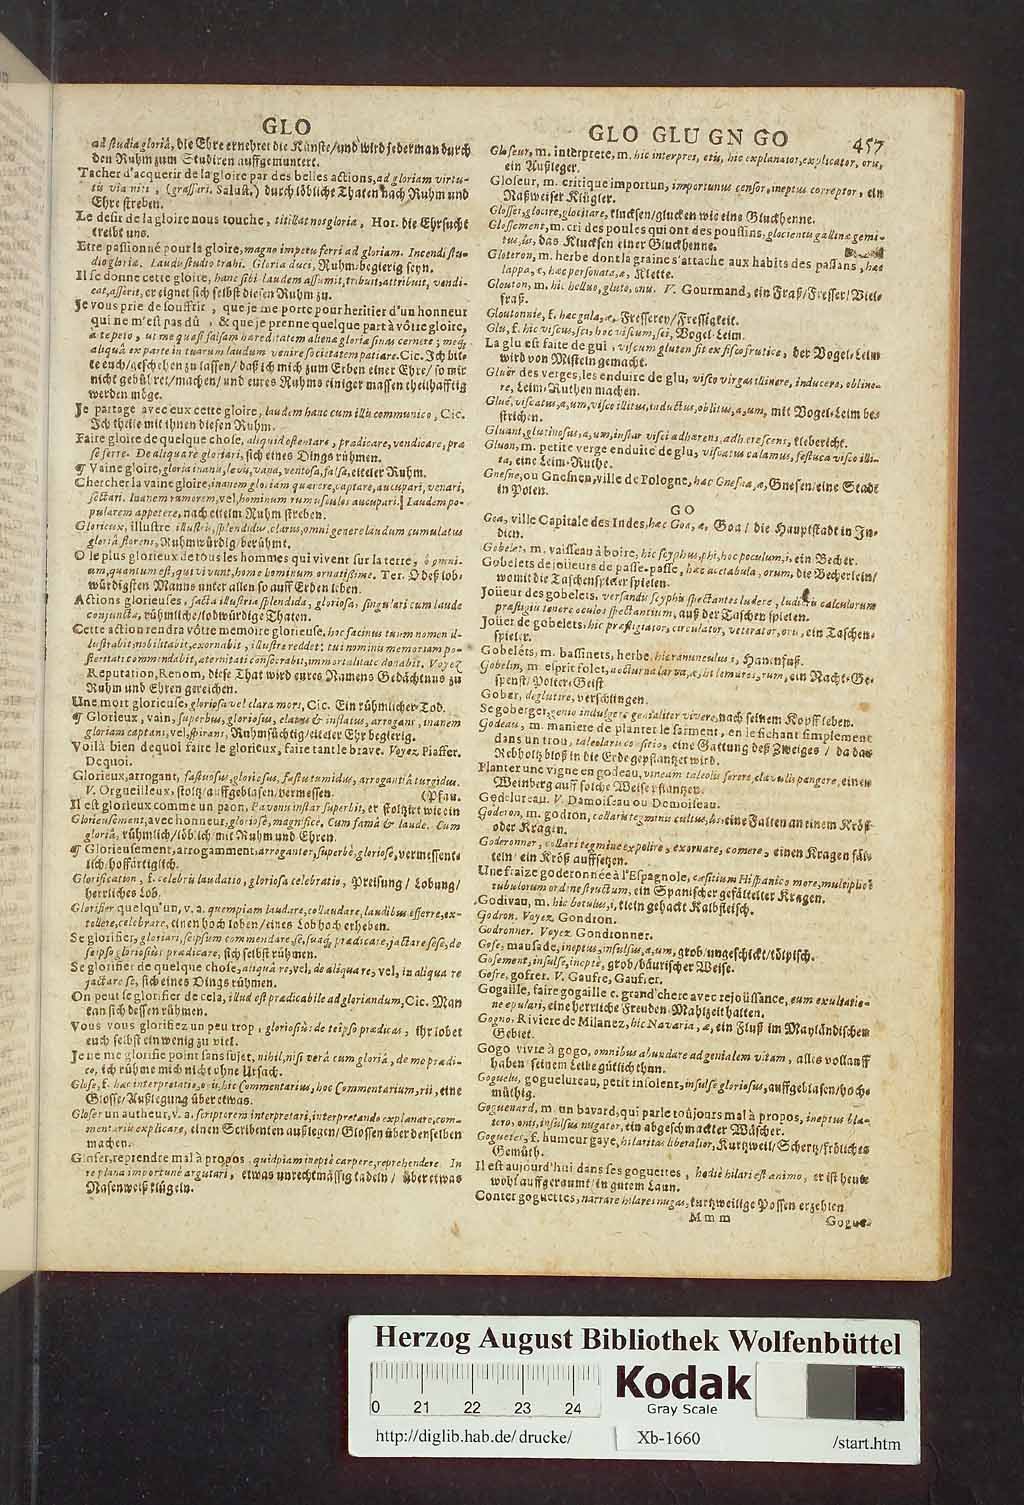 GLO
ad studia gloriâ, die Ehre ernehret die Künste/und wird jederman durch
den Ruhm zum Studiren auffgemuntert.
Tacher d'acquerir de la gloire par des belles actions, ad gloriam virtu-
tis via niti, (grassari, Salust.) durch löbliche Thaten nach Ruhm und
Ehre streben.
Le desir de la gloire nous touche, titillat nos gloria, Hor. die Ehrsucht
treibt uns.
Etre passionné pour la gloire, magno impetu ferri ad gloriam. Incendi stu-
dio gloriæ. Laudis studio trahi. Gloria duci, Ruhm-begierig seyn.
Il se donne cette gloire, hanc sibi laudem assumit, tribuit, attribuit, vendi-
cat, asserit, er eignet sich selbst diesen Ruhm zu.
Je vous prie de souffrir, que je me porte pour heritier d'un honneur
qui ne m'est pas dû, & que je prenne quelque part à vôtre gloire,
à te peto, ut me quasi falsam hæreditatem alienæ gloriæ sinas cernere; meq;
aliquâ ex parte in tuarum laudum venire societatem patiare. Cic. Ich bit-
te euch/geschehen zu lassen/ daß ich mich zum Erben einer Ehre/ so mir
nicht gebühret/machen/ und eures Ruhms einiger massen theilhafftig
werden möge.
Je partage avec eux cette gloire, laudem hanc cum illis communico, Cic.
Ich theile mit ihnen diesen Ruhm.
Faire gloire de quelque chose, aliquid ostentare, prædicare, vendicare, præ
se ferre. De aliqua re gloriari, sich eines Dings rühmen.
¶ Vaine gloire, gloria inanis, levis, vana, ventosa, falsa, eiteler Ruhm.
Chercher la vaine gloire, inanem gloriam quærere, captare, aucupari, venari,
sectari. Inanem rumorem, vel, hominum rumusculos aucupari. Laudem po-
pularem appetere, nach eitelm Ruhm streben.
Glorieux, illustre illustris, splendidus, clarus, omni genere laudum cumulatus
gloriâ florens, Ruhmwürdig/berühmt.
O le plus glorieux de tous les hommes qui vivent sur la terre, ô omni-
um, quantum est, qui vivunt, homo hominum ornatissime. Ter. O deß lob-
würdigsten Manns unter allen so auff Erden leben.
Actions glorieuses, facta illustria splendida, gloriosa, singulari cum laude
conjuncta, rühmliche/lobwürdige Thaten.
Cette action rendra vôtre memoire glorieuse, hoc facinus tuum nomen il-
lustrabit, nobilitabit, exornabit, illustre reddet; tui nominis memoriam po-
steritati commendabit, æternitati consecrabit, immortalitate donabit. Voyez
Reputation, Renom, diese That wird eures Namens Gedächtnus zu
Ruhm und Ehren gereichen.
Une mort glorieuse, gloriosa vel clara mors, Cic. Ein rühmlicher Tod.
¶ Glorieux, vain, superbus, gloriosus, elatus & inflatus, arrogans, inanem
gloriam captans, vel, spirans, Ruhmsüchtig/eiteler Ehr begierig.
Voilà bien dequoi faire le glorieux, faire tant le brave. Voyez Piaffer.
Dequoi.
Glorieux, arrogant, fastuosus, gloriosus, fastu tumidus, arrogantiâ turgidus.
V. Orgueilleux, stoltz/auffgeblasen/vermessen.
(Pfau.
Il est glorieux comme un paon, Pavonis instar superbit, er stoltziret wie ein
Glorieusement, avec honneur, gloriosè, magnificè. Cum famâ & laude. Cum
gloriâ, rühmlich/löblich/mit Ruhm und Ehren.
¶ Glorieusement, arrogamment, arroganter, superbè, gloriosè, vermessent-
lich/hoffärtiglich.
Glorification, f. celebris laudatio, gloriosa celebratio, Preisung/ Lobung/
herrliches Lob.
Glorifier quelqu'un, v. a. quempiam laudare, collaudare, laudibus efferre, ex-
tollere, celebrare, einen hoch loben/eines Lob hoch erheben.
Se glorifier, gloriari, se ipsum commendare, se, suaq; prædicare, jactare sese, de
se ipso gloriosiùs prædicare, sich selbst rühmen.
Se glorifier de quelque chose, aliquâ re, vel, de aliqua re, vel, in aliqua re
jactare se, sich eines Dings rühmen.
On peut se glorifier de cela, illud est prædicabile ad gloriandum, Cic. Man
kan sich dessen rühmen.
Vous vous glorifiez un peu trop, gloriosiùs de teipso prædicas, ihr lobet
euch selbst ein wenig zu viel.
Je ne me glorifie point sans sujet, nihil, nisi verâ cum gloriâ, de me prædi-
co, ich rühme mich nicht ohne Ursach.
Glose, f. hæc interpretatio, onis, hic Commentarius, hoc Commentarium, rii, eine
Glosse/Außlegung über etwas.
Gloser un autheur, v. a. scriptorem interpretari, interpretando explanare, com-
mentariis explicare, einen Scribenten außlegen/Glossen über denselben
machen.
Gloser, reprendre mal à propos, quidpiam ineptè carpere, reprehendere. In
re plana importunè argutari, etwas unrechtmässig tadeln/ über etwas
Nasenweiß klügeln.
GLO GLU GN GO
457
Gloseur, m. interprete, m. hic interpres, etis, hic explanator, explicator, oris,
ein Außleger.
Gloseur, m. critique importun, importunus censor, ineptus correptor, ein
Naßweiser Klügler.
Glosser, glocire, glocitare, klucksen/glucken wie eine Gluckhenne.
Glossement, m. cri des poules qui ont des poussins, glocientis gallinæ gemi-
tus, ûs, das Klucksen einer Gluckhenne.
Gloteron, m. herbe dont la graine s'attache aux habits des passans, hæc
lappa, æ, hæc personata, æ, Klette.
Glouton, m. hic helluo, gluto, onis. V. Gourmand, ein Fraß/Fresser/Viel-
fraß.
Gloutonnie, f. hæc gula, æ, Fresserey/Fressigkeit.
Glu, f. hic viscus, sci, hoc viscum, sci, Vogel-Leim.
La glu est faite de gui, viscum gluten fit ex fisco frutice, der Vogel-Leim
wird von Misteln gemacht.
Gluër des verges, les enduire de glu, visco virgas illinere, inducere, obline-
re, Leim-Ruthen machen.
Glué, viscatus, a, um, visco illitus, inductus, oblitus, a, um, mit Vogel-Leim be-
strichen.
Gluant, glutinosus, a, um, instar visci adhærens, adhærescens, klebericht.
Gluon, m. petite verge enduite de glu, viscatus calamus, festuca visco illi-
ta, eine Leim-Ruthe.
Gnesne, ou Gnesnen, ville de Pologne, hæc Gnesna, æ, Gnesen/eine Stadt
in Polen.
GO
Goa, ville Capitale des Indes, hæc Goa, æ, Goa/ die Hauptstadt in In-
dien.
Gobelet, m. vaisseau à boire, hic scyphus, phi, hoc poculum, i, ein Becher.
Gobelets de joüeurs de passe-passe, hæc acetabula, orum, die Becherlein/
womit die Taschenspieler spielen.
Joüeur des gobelets, versandis scyphis spectantes ludere, calculorum
præstigiis tenere oculos spectantium, auß der Taschen spielen.
Joüer de gobelets, hic præstigiator, circulator, veterator, oris, ein Taschen-
spieler.
Gobelets, m. bassinets, herbe, hic ranunculus, i, Hanenfuß.
Gobelin, m. esprit folet, nocturna larva, æ, hi lemures, rum, ein Nacht-Ge-
spenst/Polter-Geist.
Gober, deglutire, verschlingen.
Se goberger, genio indulgere genialiter vivere, nach seinem Kopff leben.
Godeau, m. maniere de planter le sarment, en le fichant simplement
dans un trou, taleolaris ositio, eine Gattung deß Zweiges/ da das
Rebholtz bloß in die Erde gepflantzet wird.
Planter une vigne en godeau, vineam taleolis serere, clavulis pangere, einen
Weinberg auff solche Weise pflantzen.
Godelureau. V. Damoiseau ou Demoiseau.
Goderon, m. godron, collaris tegminis cultus, ûs, eine Falten an einem Kröß
oder Kragen.
Goderonner, collari tegmine expolire, exornare, comere, einen Kragen fäl-
teln/ ein Kröß auffsetzen.
Une fraize goderonnée à l'Espagnole, cæsitium Hispanico more, multiplici
tubulorum ordine structum, ein Spanischer gefältelter Kragen.
Godivau, m. hic botulus, i, klein gehackt Kalbfleisch.
Godron. Voyez Gondron.
Godronner. Voyez Gondronner.
Gose, maussade, ineptus, insulsus, a, um, grob/ungeschickt/tölpisch.
Gosement, insulsè, ineptè, grob/bäurischer Weise.
Gofre, gofrer. V. Gaufre, Gaufrer.
Gogaille, faire gogaille c. grand'chere avec rejoüissance, cum exultatio-
ne epulari, eine herrliche Freuden-Mahlzeit halten.
Gogno, Riviere de Milanez, hic Navaria, æ, ein Fluß im Mayländischen
Gebiet.
Gogo vivre à gogo, omnibus abundare ad genialem vitam, alles vollauff
haben/ seinem Leibe gütlich thun.
Goguelu, goguelureau, petit insolent, insulse gloriosus, auffgeblasen/hoch-
müthig.
Goguenard, m. un bavard, qui parle toûjours mal à propos, ineptus bla-
tero, onis, insulsus nugator, ein abgeschmackter Wäscher.
Goguetes, f. humeur gaye, hilaritas liberalior, Kurtzweil/Schertz/fröliches
Gemüth.
Il est aujourd'hui dans ses goguettes, hodiè hilari est animo, er ist heute
wohl auffgeraumt/in gutem Laun.
Conter goguettes, narrare hilares nugas, kurtzweilige Possen erzehlen
Mmm
Gogue-
Herzog August Bibliothek Wolfenbüttel
0 21 22 23 24
Kodak
Gray Scale
http://diglib.hab.de/drucke/ Xb-1660 /start.htm